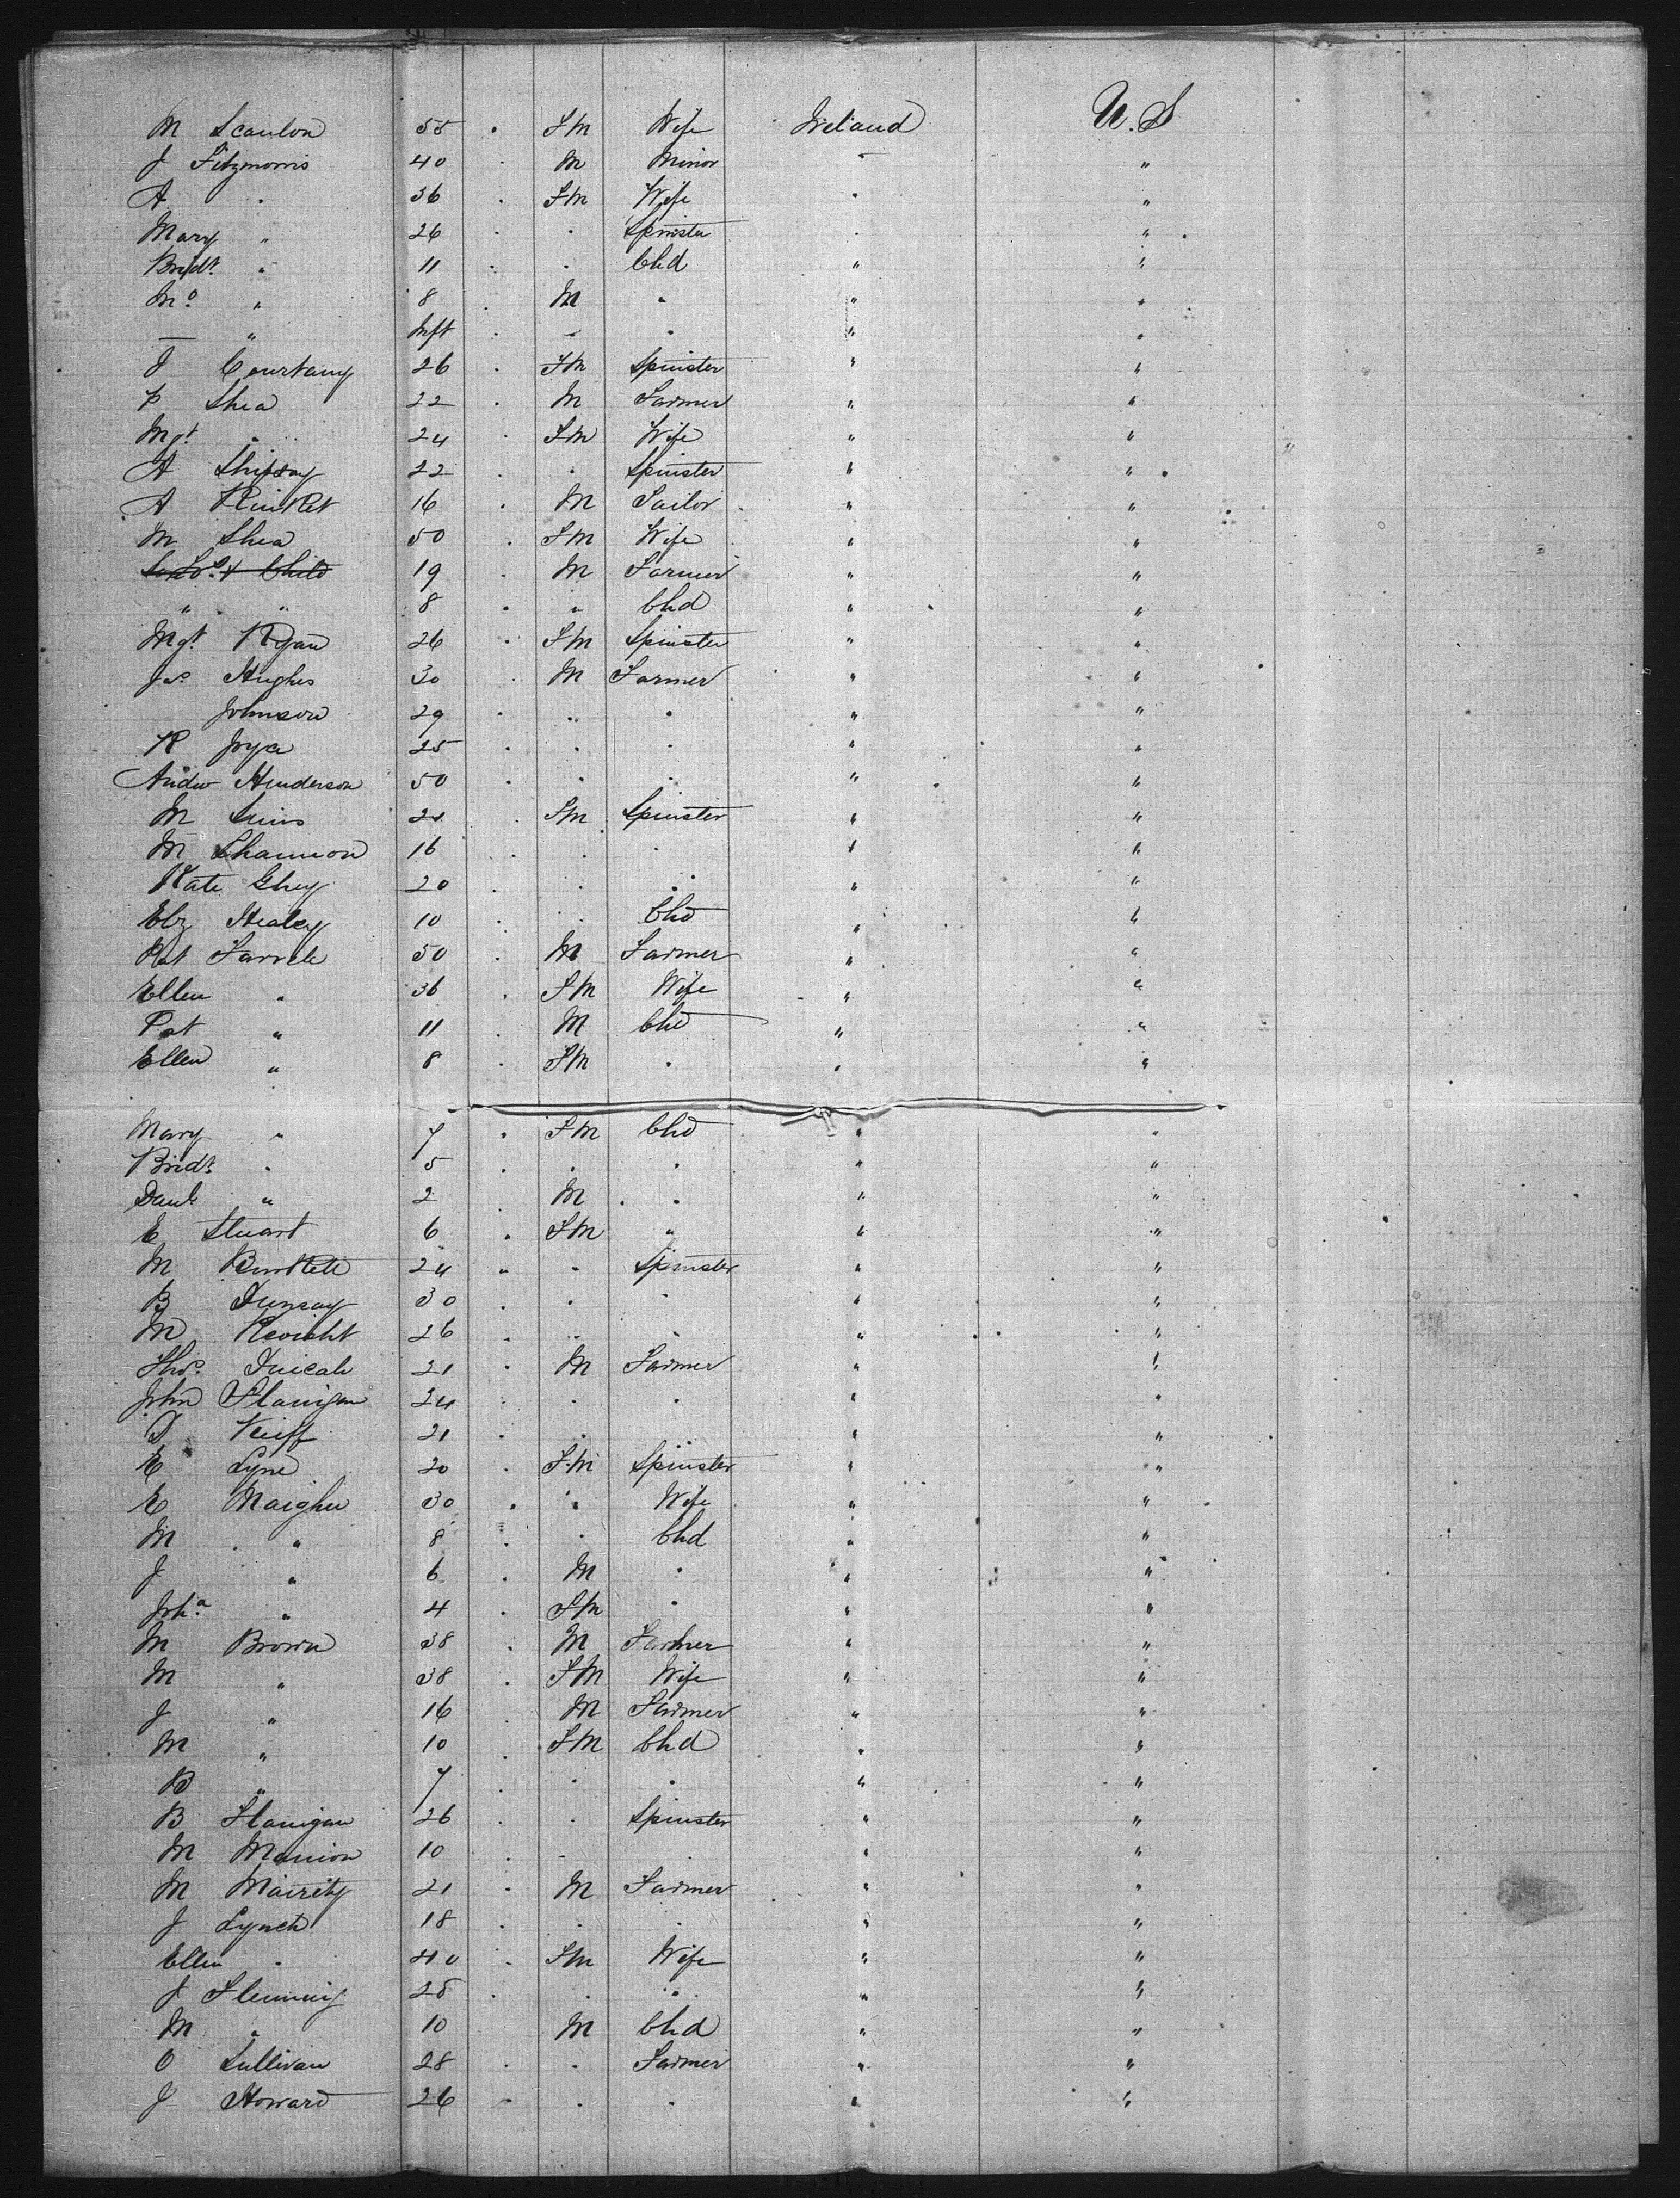 M Scanlon 55 " FM Wife Ireland U.S
J Fitzmorris 40 " M Minor " "
A " 36 " FM Wife " "
Mary " 26 " " Spinster " "
Bridt " 11 " " Chd " "
Mo " 8 " M " " "
— " Inft " " " " "
J Courtany 26 " FM Spinster " "
P Shea 22 " M Farmer " "
Mgt " 24 " FM Wife " "
A 22 " " Spinster " "
A 16 " M Sailor " "
M Shea 50 " FM Wife " "
& Child 19 " M Farmer " "
" " 8 " " Chd " "
Mgt Ryan 26 " FM Spinster " "
Jas Hughes 30 " M Farmer " "
Johnson 29 " " " " "
R Joyce 25 " " " " "
Andw Henderson 50 " " " " "
M 21 " FM Spinster " "
M Shannon 16 " " " " "
Kate Ghey 20 " " " " "
Elz Healey 10 " " Chd " "
Pat Farrele 50 " M Farmer " "
Ellen " 36 " FM Wife " "
Pat " 11 " M Chd " "
Ellen " 8 " FM " " "
Mary " 7 " FM Chd " "
Bridt " 5 " " " " "
Danl " 2 " M " " "
E Stuart 6 " FM " " "
M 24 " " Spinster " "
B Dunsay 30 " " " " "
M 26 " " " " "
Thos 21 " M Farmer " "
John Flanigan 24 " " " " "
D Keiff 21 " " " " "
E Lyne 20 " FM Spinster " "
E Maigher 30 " " Wife " "
M " 8 " " Chd " "
J " 6 " M " " "
Joha " 4 " FM " " "
M Brown 38 " M Farmer " "
M " 38 " FM Wife " "
J " 16 " M Farmer " "
M " 10 " FM Chd " "
B " 7 " " " " "
B Flanigan 26 " " Spinster " "
M Manion 10 " " " " "
M Mairity 21 " M Farmer " "
J Lynch 18 " " " " "
Ellen " 40 " FM Wife " "
J Flenning 28 " " " " "
M " 10 " M Chd " "
O Sullivan 28 " " Farmer " "
J Howard 26 " " " " "